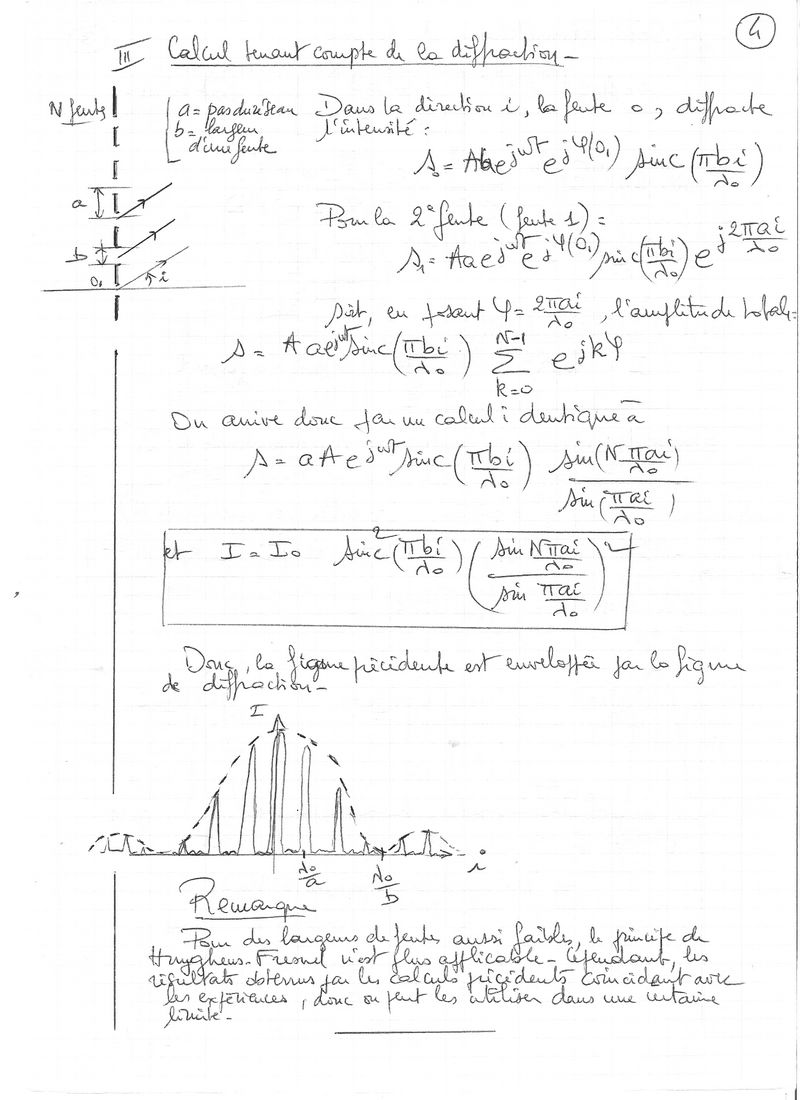 4
III Calcul tenant compte de la diffraction -
N fentes
a = pas du réseau
b = largeur
d'une fente
a
b
O₁
i
Dans la direction i, la fente O₁ diffracte
l'intensité :
s₀ = Aa e^{jωt} e^{jφ(O₁)} sinc(πbi/λ₀)
Pour la 2° fente (fente 1) :
s₁ = Aa e^{jωt} e^{jφ(O₁)} sinc(πbi/λ₀) e^{j 2πai/λ₀}
soit, en posant φ = 2πai/λ₀, l'amplitude totale =
s = Aa e^{jωt} sinc(πbi/λ₀) Σ_{k=0}^{N-1} e^{jkφ}
On arrive donc par un calcul identique à
s = aA e^{jωt} sinc(πbi/λ₀) sin(Nπai/λ₀) / sin(πai/λ₀)
et I = I₀ sinc²(πbi/λ₀) (sin Nπai/λ₀ / sin πai/λ₀)²
Donc, la figure précédente est enveloppée par la figure
de diffraction -
I
λ₀/a
λ₀/b
i
Remarque
Pour des largeurs de fentes aussi faibles, le principe de
Huyghens-Fresnel n'est plus applicable - Cependant, les
résultats obtenus par les calculs précédents coincident avec
les expériences, donc on peut les utiliser dans une certaine
limite -